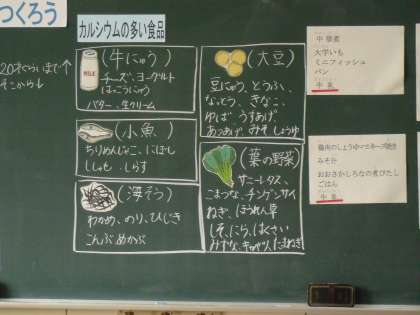 つくろう
カルシウムの多い食品
20才ぐらいまで↑
そこから↓
(牛にゅう)
MILK
チーズ、ヨーグルト
はっこうにゅう
バター、生クリーム
(大豆)
豆にゅう、とうふ、
なっとう、きなこ、
ゆば、うすあげ、
あつあげ、みそ、しょうゆ
(小魚)
ちりめんじゃこ、にぼし
ししゃも、しらす
(葉の野菜)
サニーレタス、
こまつな、チンゲンサイ
ねぎ、ほうれん草
しそ、にら、はくさい
みずな、キャベツ、たまねぎ
(海そう)
わかめ、のり、ひじき
こんぶ、めかぶ
中華煮
大学いも
ミニフィッシュ
パン
牛乳
鶏肉のしょうゆマヨネーズ焼き
みそ汁
おおさかしろなの煮びたし
ごはん
牛乳